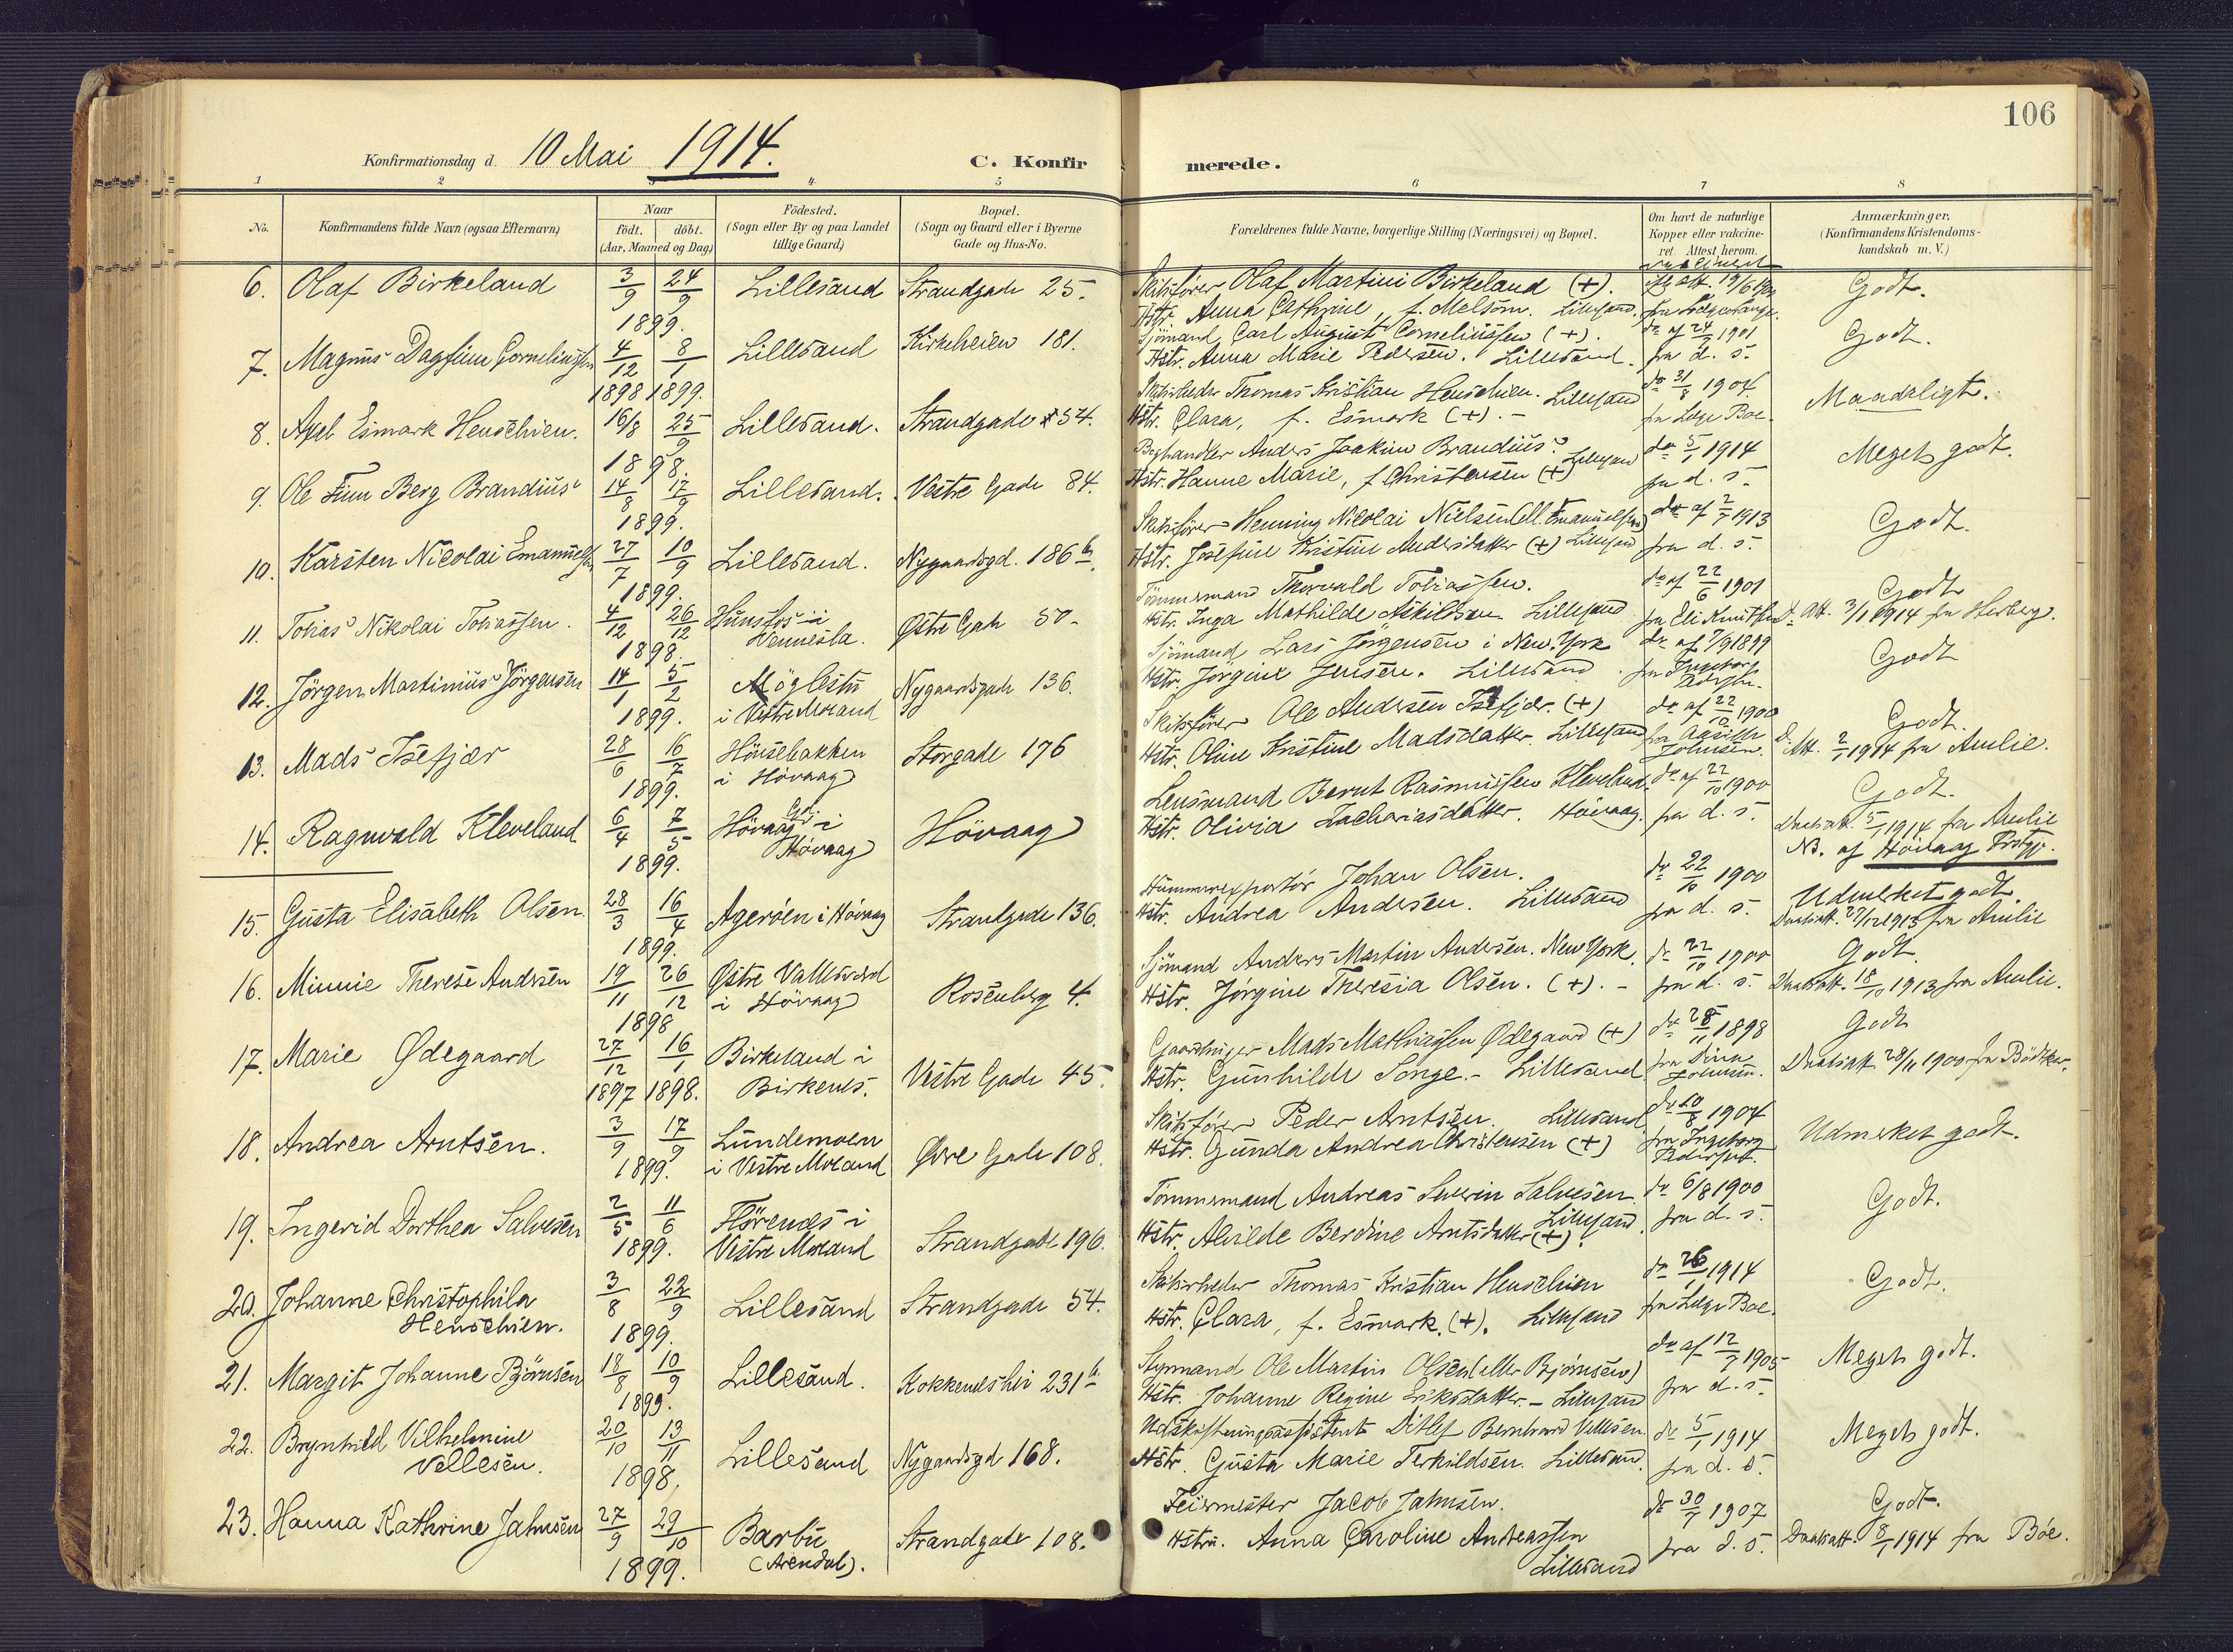 106
Konfirmationsdag d. 10 Mai 1914.
C. Konfirmerede.
1 2 3 4 5 6 7 8
No.
Konfirmandens fulde Navn (ogsaa Efternavn)
Naar
födt. döbt.
(Aar, Maaned og Dag)
Födested.
(Sogn eller By og paa Landet
tillige Gaard)
Bopæl.
(Sogn og Gaard eller i Byerne
Gade og Hus-No.
Forældrenes fulde Navne, borgerlige Stilling (Næringsvei) og Bopæl.
Om havt de naturlige
Kopper eller vakcine-
ret. Attest herom.
Anmærkninger.
(Konfirmandens Kristendoms-
kundskab m. V.)
6. Olaf Birkeland 3/9 24/9 1899. Lillesand Strandgade 25.
Skibsfører Olaf Martini Birkeland (+).
Hstr. Anna Cathrine, f. Melsom. Lillesand.
Godt.
7. Magnus Dagfinn Corneliussen 4/12 1898 8/1 1899. Lillesand Kirkeheien 181.
Sjömand Carl August Corneliussen (+).
Hstr. Anna Marie Pedersen. Lillesand.
1901
fra d. s.
Godt.
8. Axel Esmark Henschien. 16/8 25/9 1898. Lillesand. Strandgade 54.
Skibsrheder Thomas Kristian Henschien. Lillesand
Hstr. Clara, f. Esmark (+). -
do 31/8 1904
fra Læge Boe.
Maadeligt.
9. Ole Finn Berg Brandius 14/8 17/9 1899. Lillesand. Vestre Gade 84.
Boghandler Anders Joakim Brandius
Hstr. Hanne Marie, f. Christensen (+) Lillesand
do 5/1 1914
fra d. s.
Meget godt.
10. Karsten Nicolai Emanuelsen 27/7 10/9 1899. Lillesand. Nygaardsgd. 186 b.
Skibsfører Henning Nicolai Nielsen (ell. Emanuelsen)
Hstr. Josefine Kristine Andersdatter (+) Lillesand
do af 2/7 1913
fra d. s.
Godt.
11. Tobias Nikolai Tobiassen. 4/12 26/12 1898. Hunsfos i Vennesla. Østre Gade 50.
Tömmermand Thorvald Tobiassen.
Hstr. Inga Mathilde Askildsen Lillesand
do af 22/6 1901
fra Eli Knutsen
Godt
D. Att. 3/1 1914 fra Herberg.
12. Jörgen Martinius Jörgensen 14/1 5/2 1899. Möglestu i Vestre Moland Nygaardsgade 136.
Sjömand Lars Jörgensen i New-York
Hstr. Jörgine Jensen. Lillesand.
do af 7/9 1899
fra Ingeborg
Godt
13. Mads Isefjær 28/6 16/7 1899. Hönsebakken i Hövaag Storgade 176
Skibsfører Ole Andersen Isefjær. (+)
Hstr. Oline Kristine Madsdatter. Lillesand
do af 22/10 1900
fra Aasille Johnsen.
Godt.
D. Att. 2/1 1914 fra Amlie.
14. Ragnvald Kleveland 6/4 7/5 1899. Hövaag Gd. i Hövaag Hövaag
Lensmand Bernt Rasmussen Kleveland.
Hstr. Olivia Zachariasdatter. Höivaag.
do af 22/10 1900
fra d. s.
Godt.
Daabsatt. 5/1 1914 fra Amlie
NB. af Höivaag Prstgj.
15. Gusta Elisabeth Olsen 28/3 16/4 1899. Ageröen i Hövaag Strandgade 136.
Hummerexportör Johan Olsen.
Hstr. Andrea Andersen. Lillesand
do 22/10 1900
fra d. s.
Udmerket godt.
Daabsatt. 27/12 1913 fra Amlie
16. Minnie Therese Andersen 19/11 26/12 1898 Østre Vallesverd i Hövaag Rosenberg 4.
Sjömand Anders Martin Andersen. New York.
Hstr. Jörgine Theresia Olsen. (+). -
do 22/10 1900
fra d. s.
Godt.
Daabsatt. 18/10 1913 fra Amlie.
17. Marie Ødegaard 27/12 1897 16/1 1898. Birkeland i Birkenes. Vestre Gade 45.
Gaardbruger Mads Mathiassen Ødegaard (+)
Hstr. Gunhilde Songe. - Lillesand
do 28/11 1898
fra Dina Johnsen.
Godt
Daabsatt. 28/11 1900 fra Bödtker.
18. Andrea Arntsen. 3/9 17/9 1899. Lundemoen i Vestre Moland Øvre Gade 108.
Skibsfører Peder Arntsen. Lillesand
Hstr. Gunda Andrea Christensen (+)
do 10/8 1904
fra Ingeborg Pedersen.
Udmerket godt.
19. Ingerid Dorthea Salvesen 2/5 11/6 1899. Flörenes i Vestre Moland Strandgade 196.
Tömmermand Andreas Severin Salvesen
Hstr. Alvilde Berdine Arntsdatter (+). Lillesand.
do 6/8 1900
fra d. s.
Godt.
20. Johanne Christophila Henschien. 3/8 22/9 1899. Lillesand Strandgade 54.
Skibsrheder Thomas Kristian Henschien
Hstr. Clara, f. Esmark. (+). Lillesand
do 26/1 1914
fra Læge Boe.
Godt.
21. Margit Johanne Björnsen 18/8 10/9 1899. Lillesand. Kokkeneshei 231 b
Styrmand Ole Martin Olsen (eller Bjørnsen)
Hstr. Johanne Regine Eriksdatter. - Lillesand
do af 12/7 1905
fra d. s.
Meget godt.
22. Brynhild Vilhelmine Vellesen. 20/10 13/11 1898. Lillesand Nygaardsgd 168.
Udskiftningsassistent Ditlef Bernhard Vellesen
Hstr. Gusta Marie Terkildsen. Lillesand.
do 5/1 1914
fra d. s.
Meget godt.
23. Hanna Kathrine Jahnsen 27/9 29/10 1899. Barbu (Arendal). Strandgade 108.
Feiermester Jacob Jahnsen.
Hstru. Anna Caroline Andreassen
Lillesand
do 30/7 1907
fra d. s.
Godt.
Daabsatt. 8/1 1914 fra Böe.